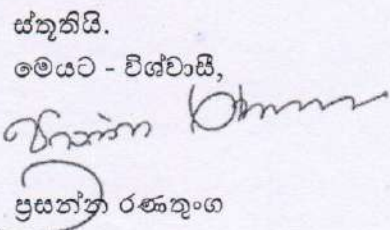 ස්තූතියි.
මෙයට - විශ්වාසී,
ප්‍රසන්න රණතුංග